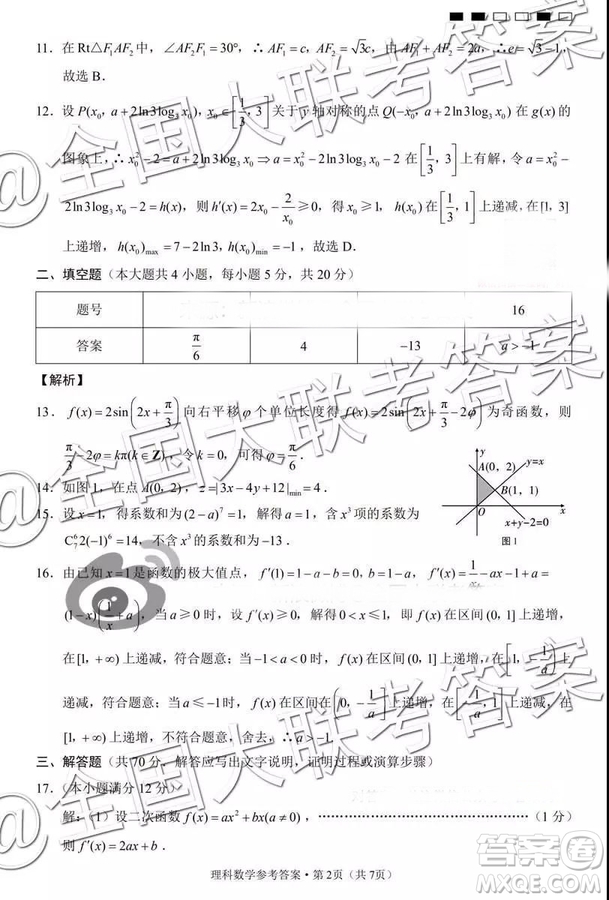 11．在Rt△F₁AF₂中，∠AF₂F₁=30°，∴AF₁=c，AF₂=√3c，由AF₁+AF₂=2a，∴e=√3−1．
故选B．
12．设P(x₀, a+2ln3log₃x₀)，x₀∈[1/3, 3]关于y轴对称的点Q(−x₀, a+2ln3log₃x₀)在g(x)的
图象上，∴x₀²−2=a+2ln3log₃x₀⇒a=x₀²−2ln3log₃x₀−2在[1/3, 3]上有解，令a=x₀²−
2ln3log₃x₀−2=h(x)，则h′(x)=2x₀−2/x₀≥0，得x₀≥1，h(x)在[1/3, 1]上递减，在[1, 3]
上递增，h(x₀)max=7−2ln3，h(x₀)min=−1，故选D．
二、填空题（本大题共4小题，每小题5分，共20分）
题号 16
答案 π/6 4 −13 a>−1
【解析】
13．f(x)=2sin(2x+π/3)向右平移φ个单位长度得f(x)=2sin(2x+π/3−2φ)为奇函数，则
π/3−2φ=kπ(k∈Z)，令k=0，可得φ=π/6．
14．如图1，在点A(0, 2)，z=|3x−4y+12|min=4．
15．设x=1，得系数和为(2−a)⁷=1，解得a=1，含x³项的系数为
C₇⁶2(−1)⁶=14，不含x³的系数和为−13．
y
y=x
A(0, 2)
B(1, 1)
O
x
x+y−2=0
图1
16．由已知x=1是函数的极大值点，f′(1)=1−a−b=0, b=1−a，f′(x)=1/x−ax−1+a=
(1−x)(1/x+a)，当a≥0时，设f′(x)≥0，解得0<x≤1，即f(x)在区间(0, 1]上递增，
在[1, +∞)上递减，符合题意；当−1<a<0时，f(x)在区间(0, 1]上递增，在[1, −1/a]上
递减，符合题意；当a≤−1，f(x)在区间(0, −1/a]上递增，在[−1/a, 1]上递减，在
[1, +∞)上递增，不符合题意，舍去，∴a>−1．
三、解答题（共70分．解答应写出文字说明，证明过程或演算步骤）
17．（本小题满分12分）
解：（1）设二次函数f(x)=ax²+bx(a≠0)，……………………………………（1分）
则f′(x)=2ax+b．
理科数学参考答案·第2页（共7页）
@全国大联考答案
@全国大联考答案
@全国大联考答案